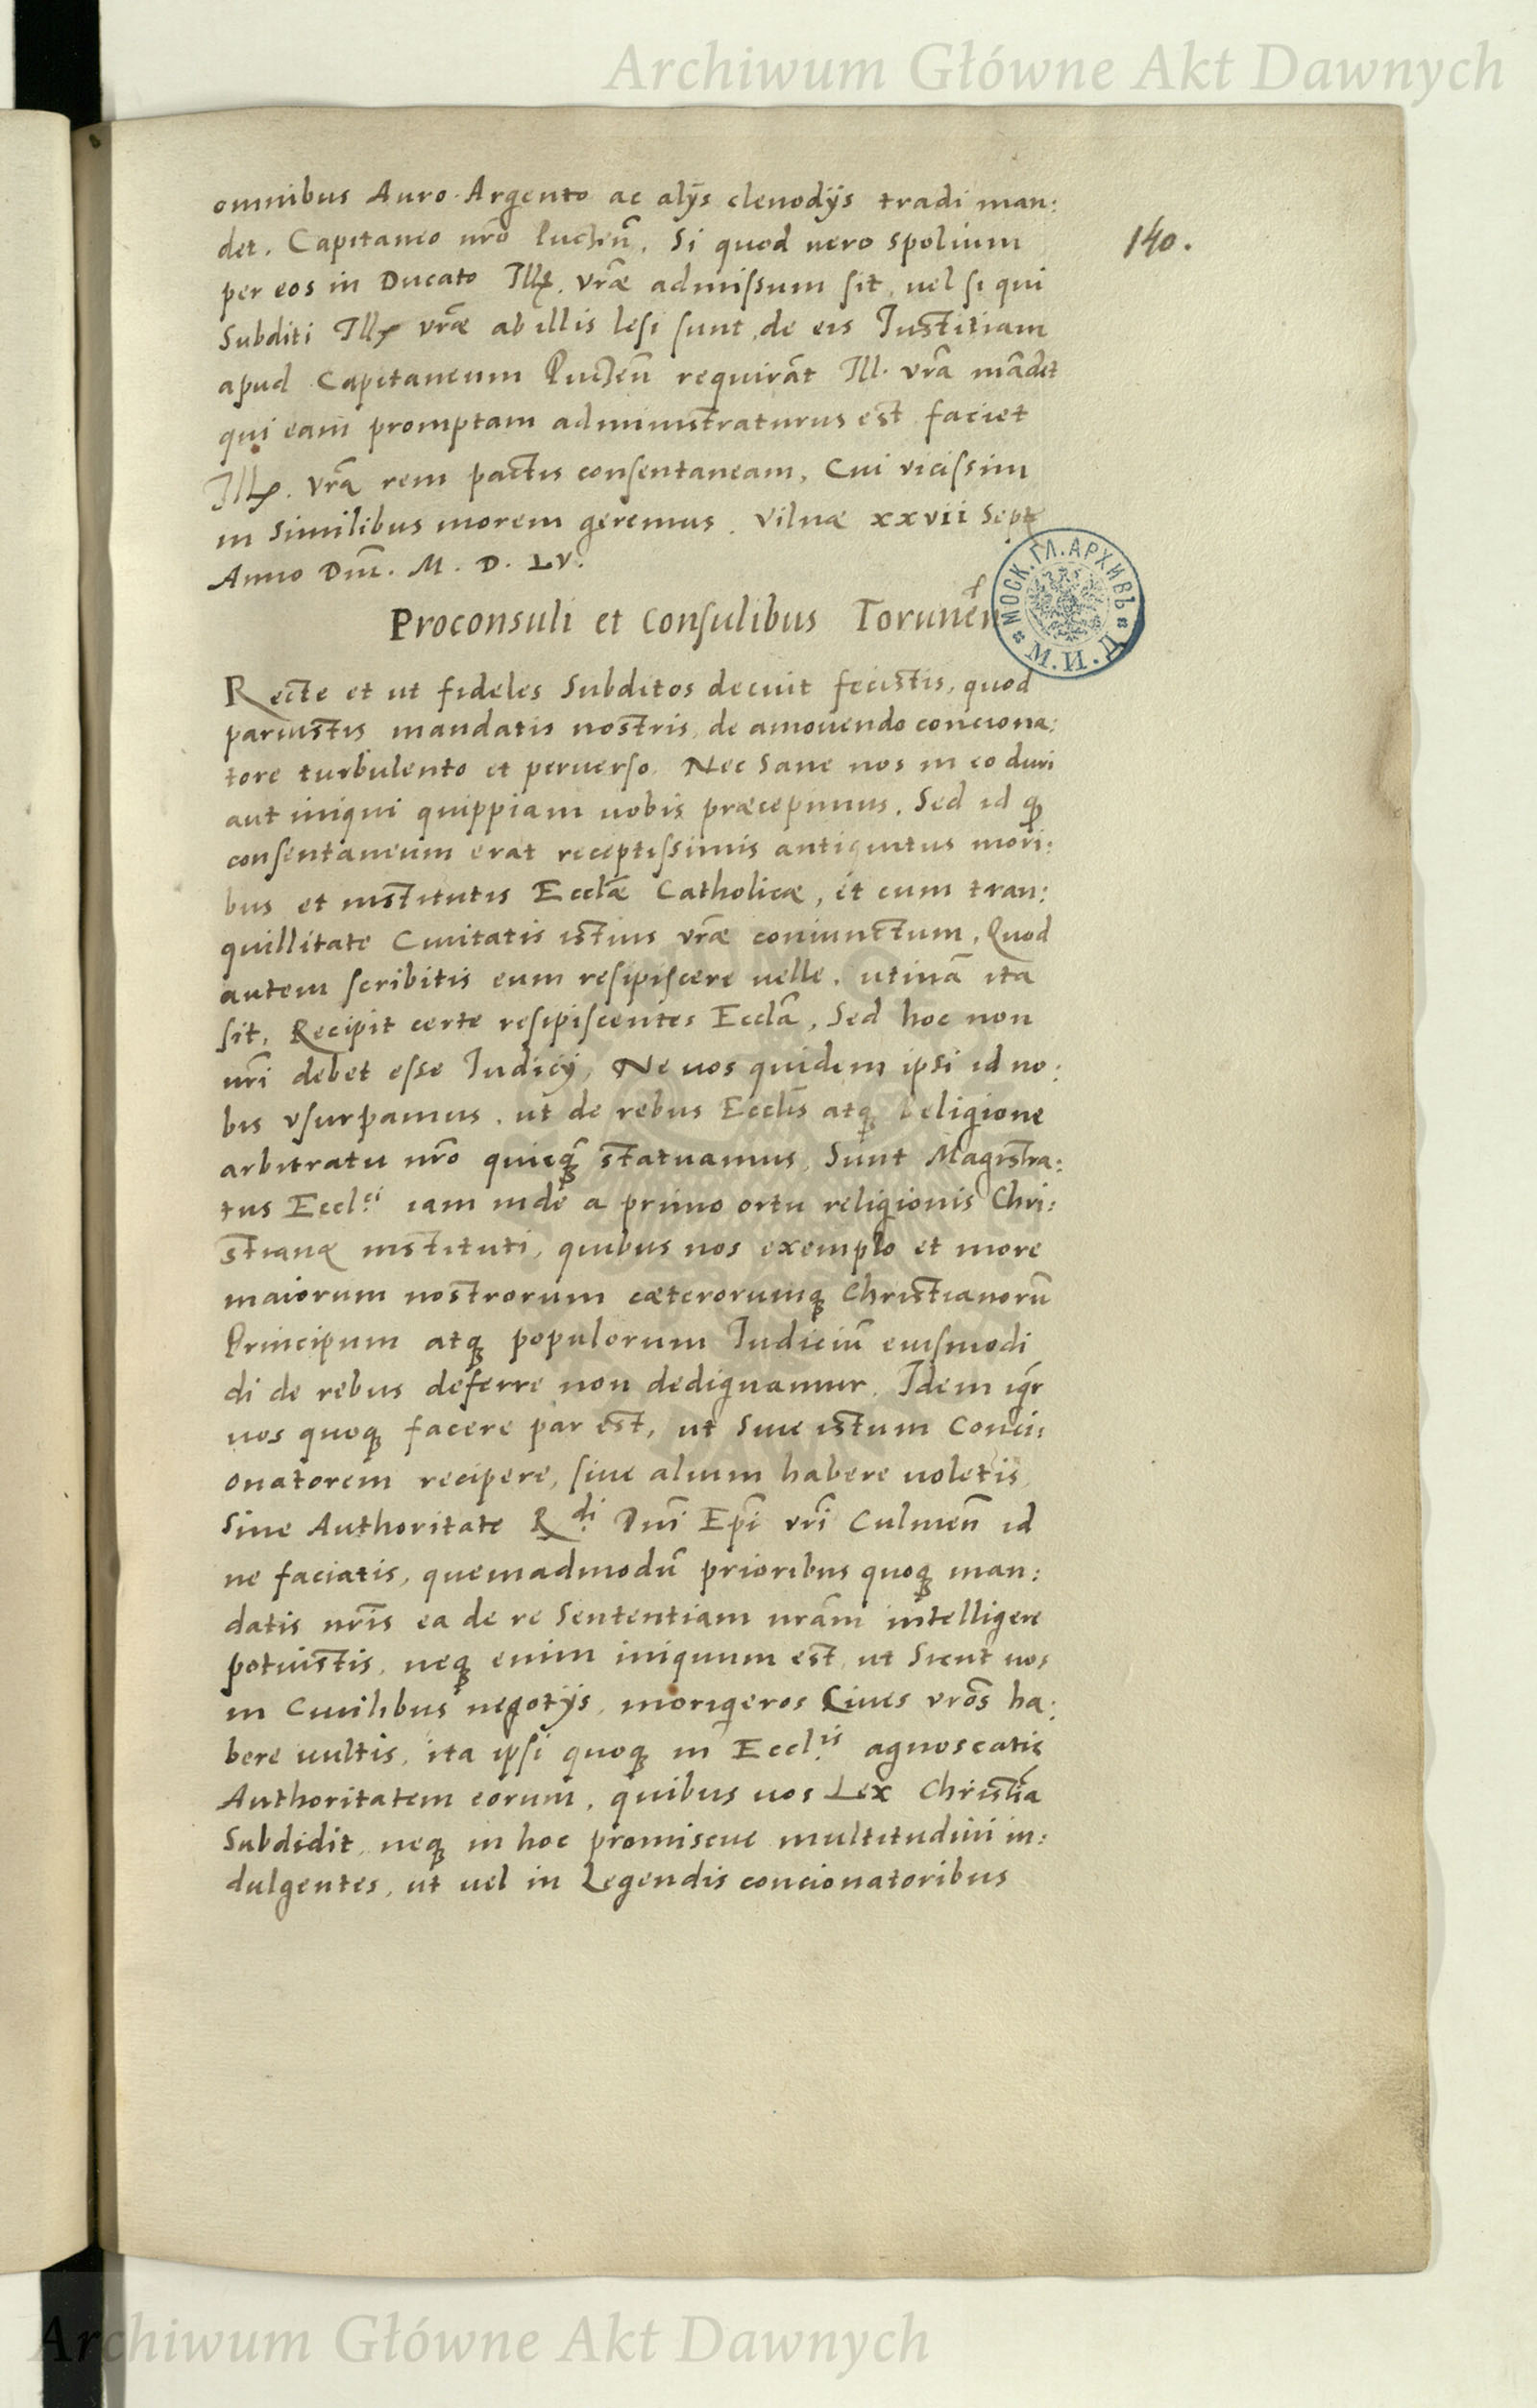 Archiwum Główne Akt Dawnych
omnibus Auro Argento ac alÿs clenodÿs tradi man:
det. Capitaneo nr̃o Puczeñ. Si quod uero spolium
140.
per eos in Ducato Ill. vr̃æ admissum sit, uel si qui
Subditi Ill vr̃æ ab illis lesi sunt, de eis Iustitiam
apud Capitaneum Puczeñ requirãt Ill. vr̃a mãdet
qui eam promptam administraturus est faciet
Ill. vr̃a rem pactis consentaneam, Cui vicissim
in Similibus morem geremus. Vilnæ xxvii Sept
Anno Dñi. M. D. LV.
Proconsuli et Consulibus Toruneñ
МОСК. ГЛ. АРХИВЪ М. И. Д.
Recte et ut fideles Subditos decuit fecistis, quod
paruistis mandatis nostris, de amouendo conciona:
tore turbulento et peruerso. Nec Sane nos in eo duri
aut iniqui quippiam uobis præcepimus. Sed id ꝙ
consentaneum erat receptissimis antiquitus mori:
bus et institutis Eccl̃æ Catholicæ, et cum tran:
quillitate Ciuitatis istius vr̃æ coniunctum. Quod
autem scribitis eum resipiscere uelle, utinã ita
sit, Recipit certe resipiscentes Eccl̃ã, Sed hoc non
nr̃i debet esse Iudicÿ, Ne nos quidem ipsi id no:
bis vsurpamus, ut de rebus Eccl̃is atqꝫ Religione
arbitratu nr̃o quicqꝫ̃ statuamus, Sunt Magistra:
tus Eccl.ci iam inde a primo ortu religionis Chri:
stianæ instituti, quibus nos exemplo et more
maiorum nostrorum cæterorumqꝫ Christianorũ
Principum atqꝫ populorum Iudiciũ eiusmodi
di de rebus deferre non dedignamur. Idem igr̃
uos quoqꝫ facere par est, ut Siue istum Conci:
onatorem recipere, siue alium habere uoletis
Sine Authoritate R.di Dñi Ep̃i vr̃i Culmeñ id
ne faciatis, quemadmodũ prioribus quoqꝫ man:
datis nr̃is ea de re Sententiam nr̃am intelligere
potuistis, neqꝫ enim iniquum est, ut Sicut uos
in Ciuilibus negotÿs, morigeros Ciues vr̃os ha:
bere uultis, ita ipsi quoqꝫ in Eccl.is agnoscatis
Authoritatem eorum, quibus uos Lex Christĩa
Subdidit, neqꝫ in hoc promiscue multitudini in:
dulgentes, ut uel in Legendis concionatoribus
Archiwum Główne Akt Dawnych